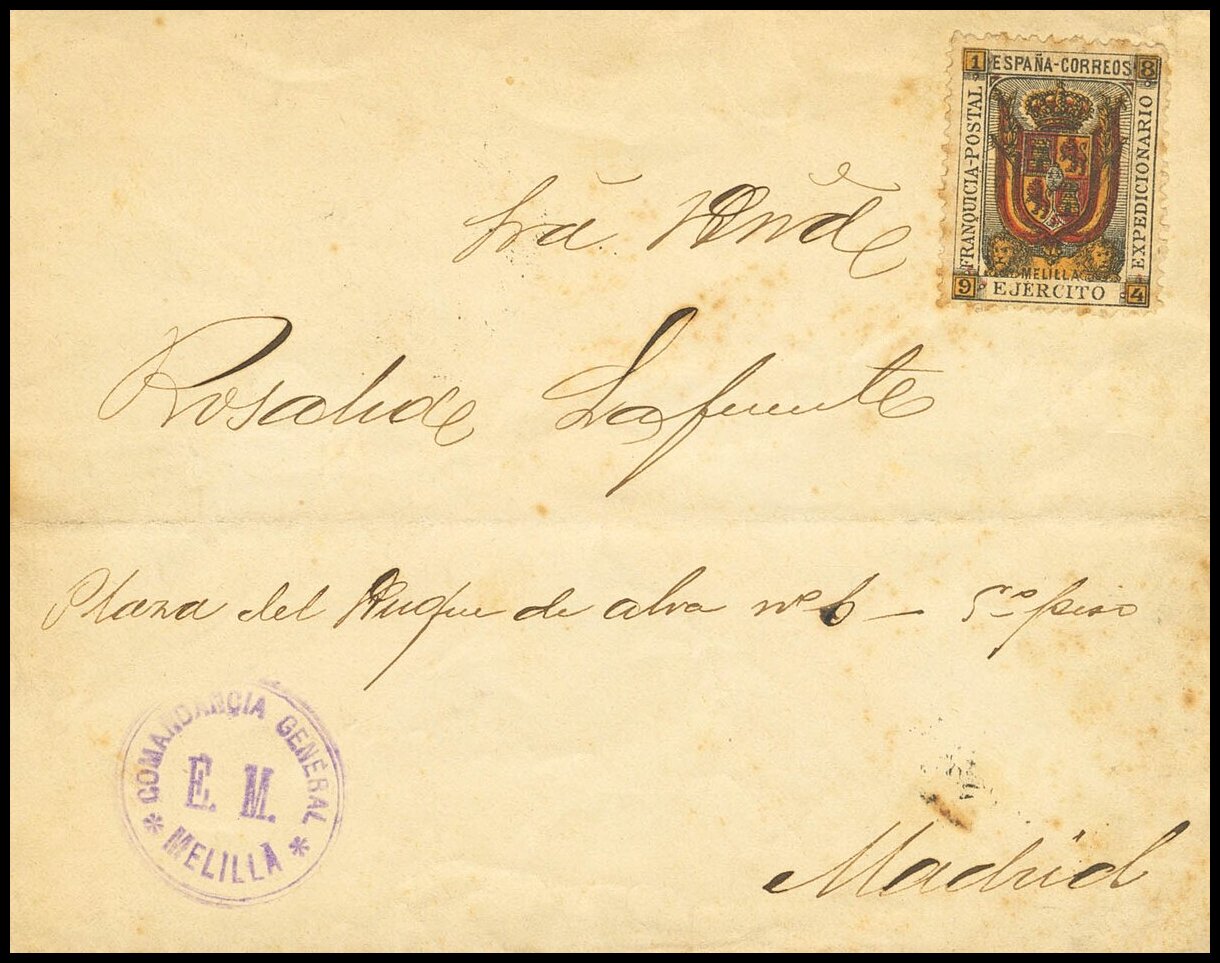 1 ESPAÑA-CORREOS 8
FRANQUICIA-POSTAL
EXPEDICIONARIO
MELILLA
9 EJÉRCITO 4
Sra
Rosalide Lafuente
Plaza del Duque de alva nº 6 — 5º piso
COMANDANCIA GENERAL
E. M.
* MELILLA *
Madrid